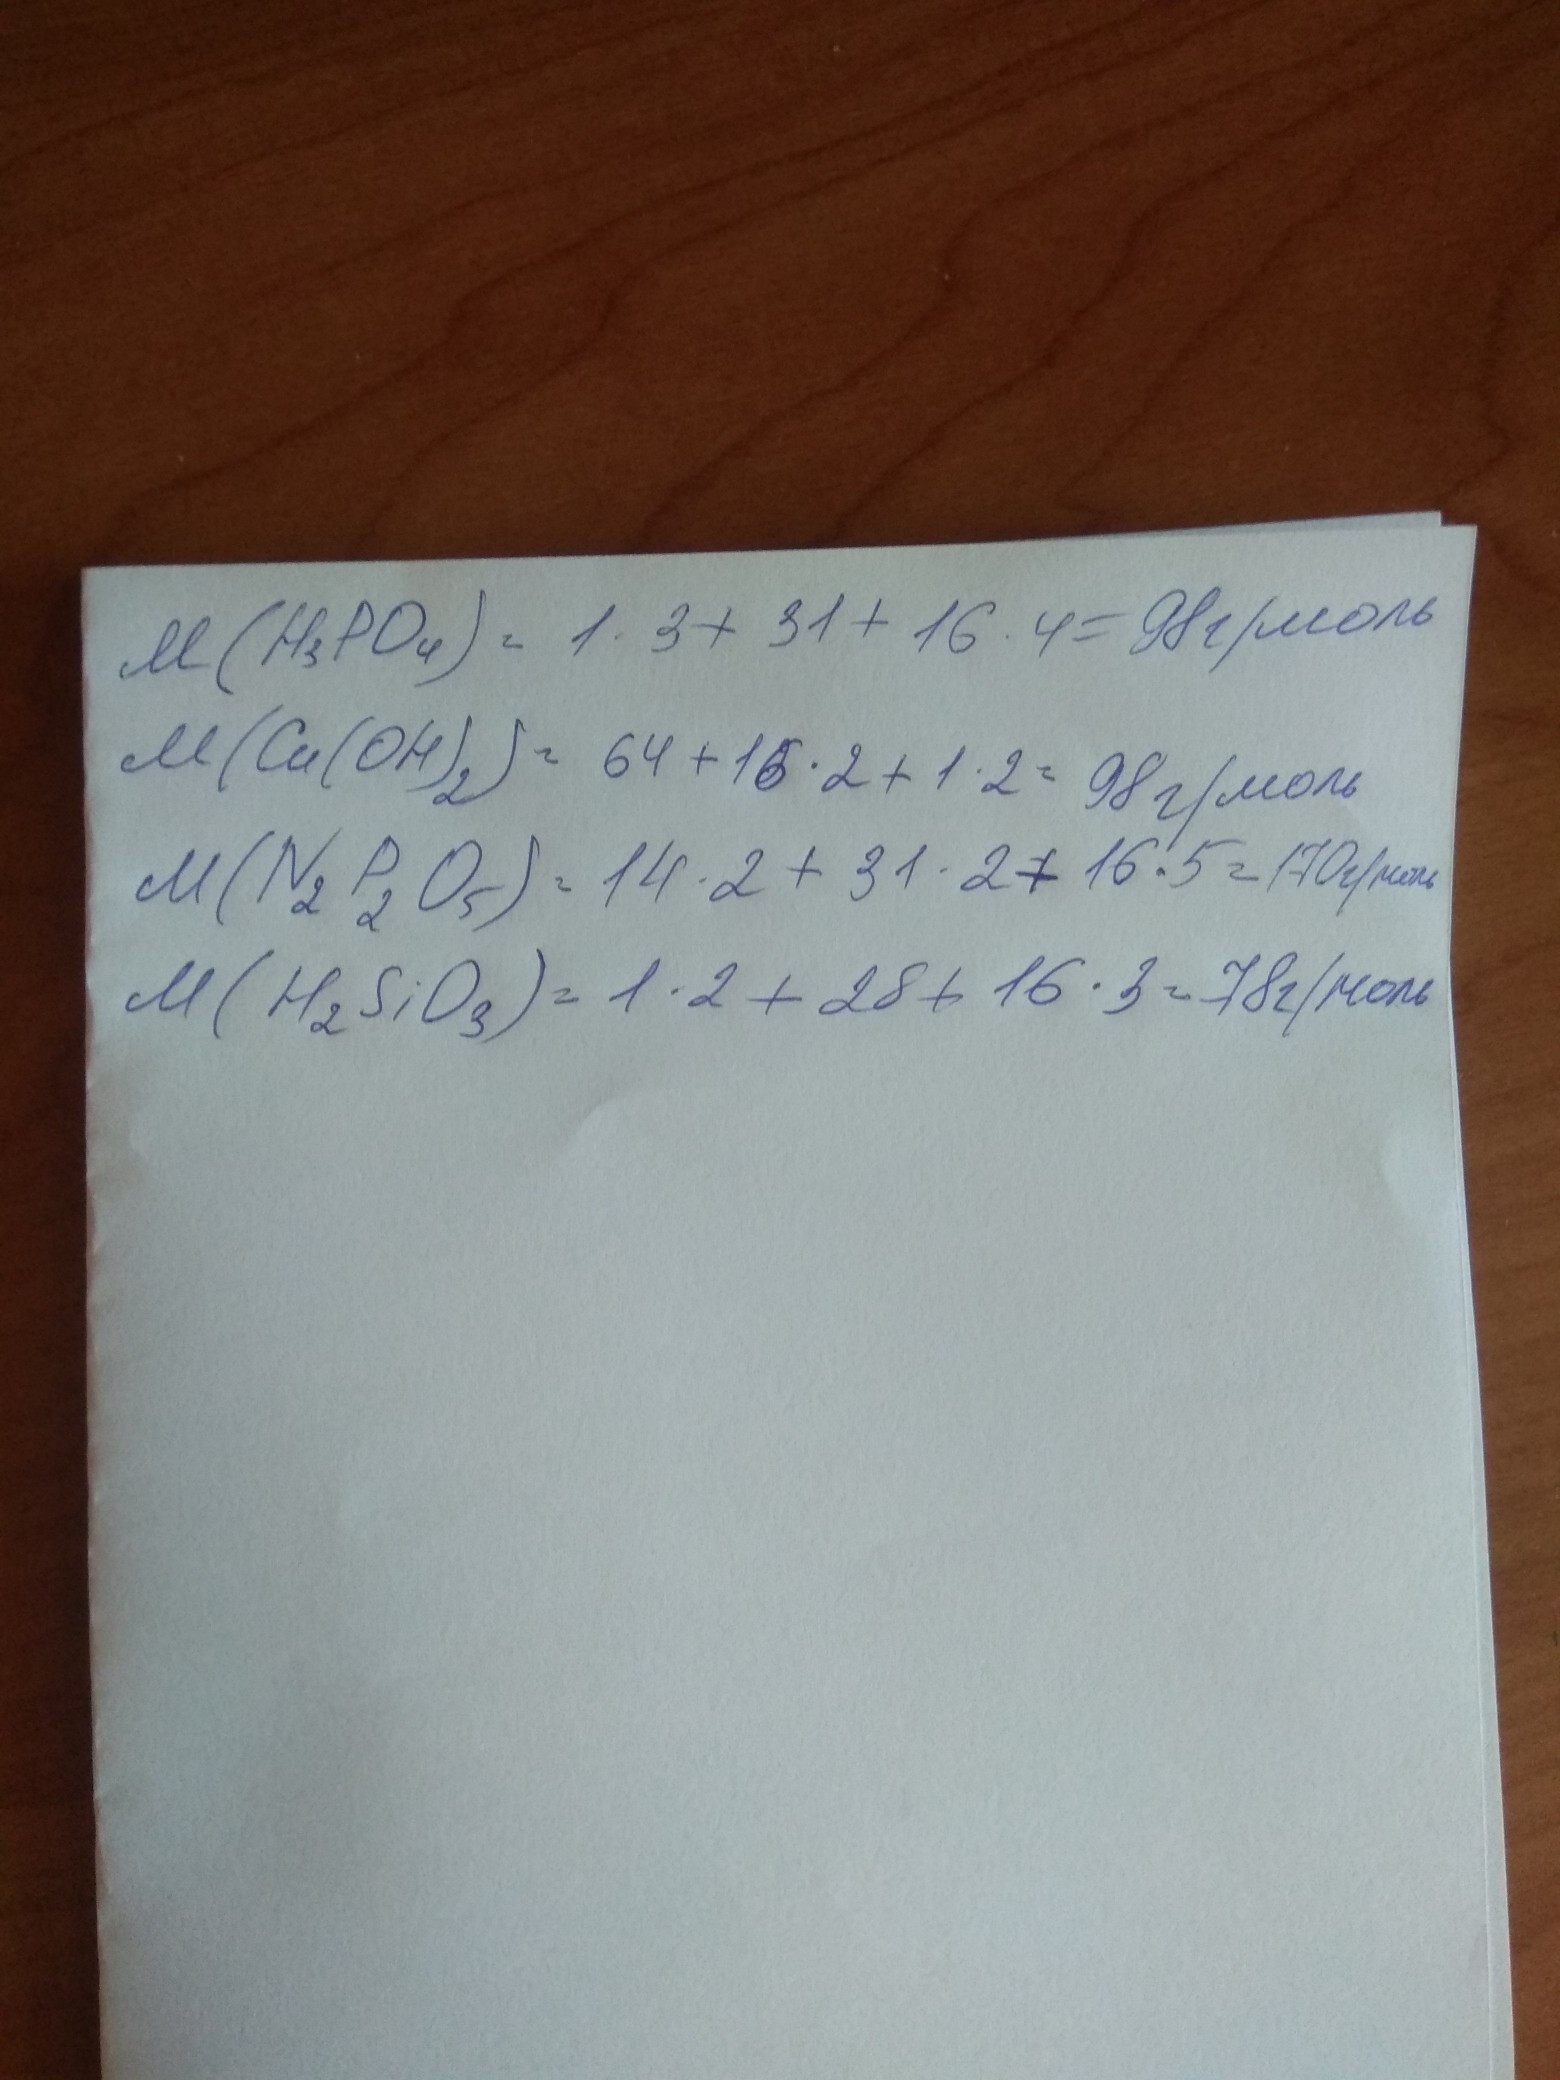 M(H₃PO₄) = 1·3+31+16·4=98г/моль
M(Cu(OH)₂)= 64+16·2+1·2= 98г/моль
M(N₂P₂O₅)=14·2+31·2+16·5=170г/моль
M(H₂SiO₃)=1·2+28+16·3=78г/моль